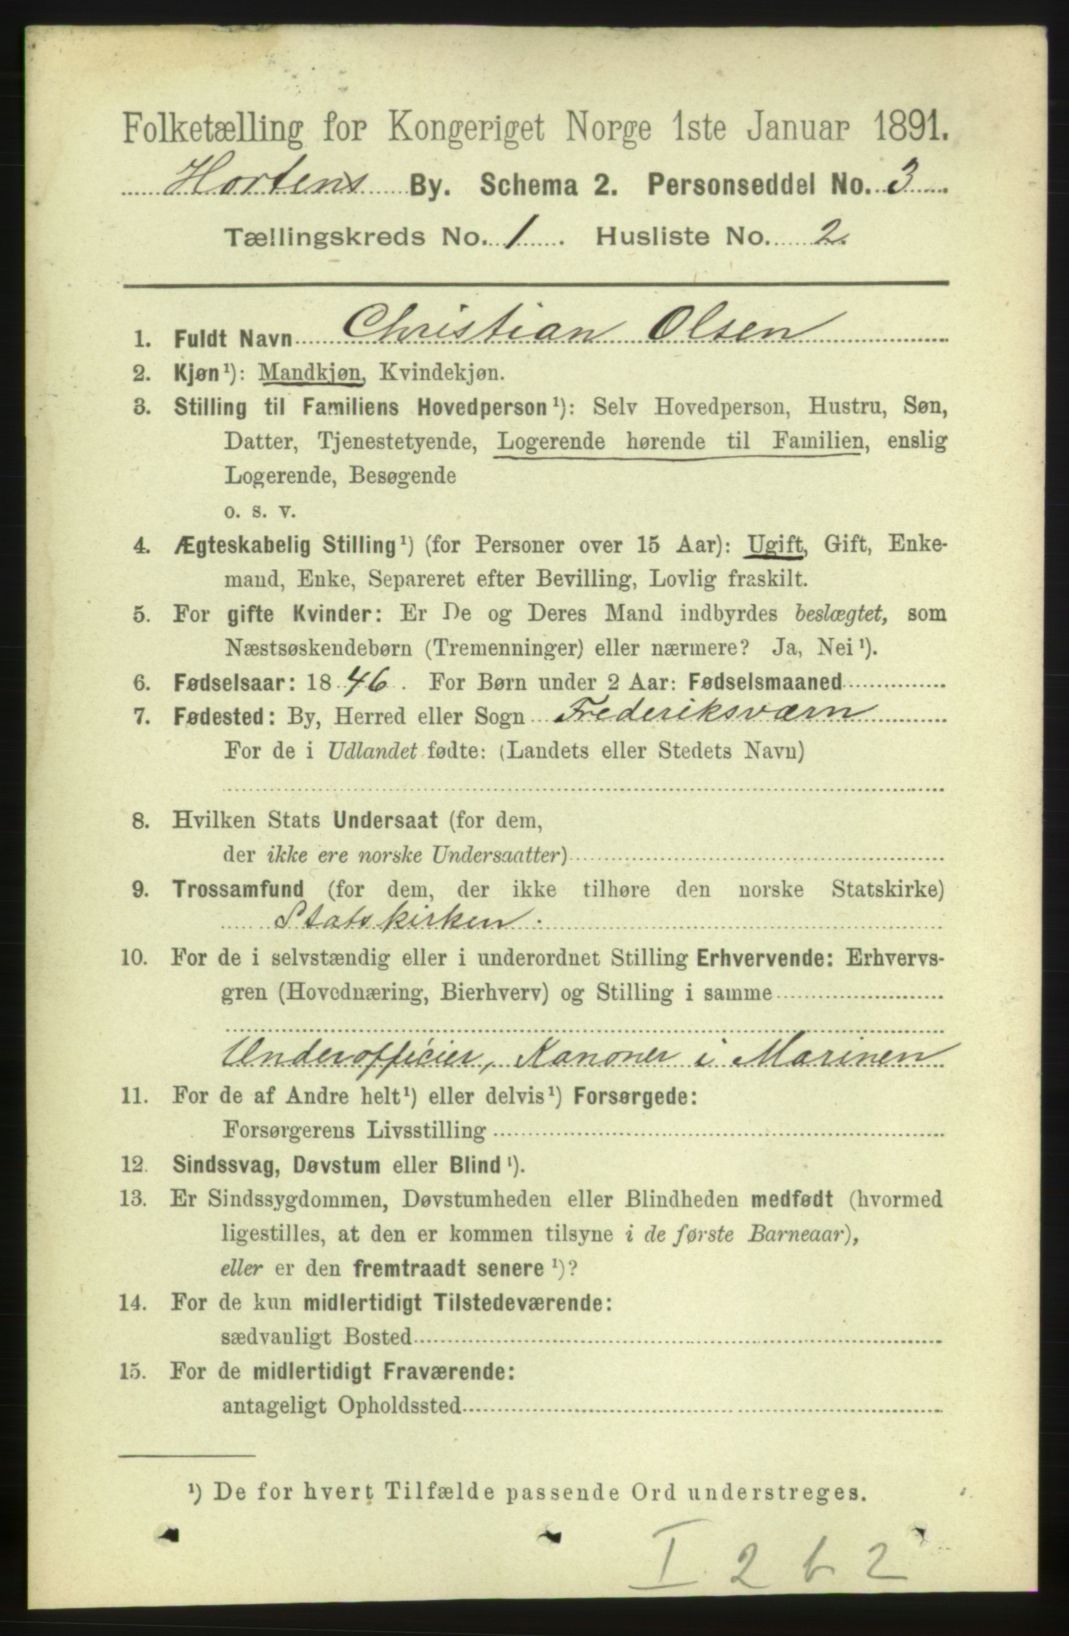 Folketælling for Kongeriget Norge 1ste Januar 1891.
Hortens By. Schema 2. Personseddel No. 3.
Tællingskreds No. 1. Husliste No. 2.
1. Fuldt Navn Christian Olsen
2. Kjøn¹): Mandkjøn, Kvindekjøn.
3. Stilling til Familiens Hovedperson¹): Selv Hovedperson, Hustru, Søn,
Datter, Tjenestetyende, Logerende hørende til Familien, enslig
Logerende, Besøgende
o. s. v.
4. Ægteskabelig Stilling¹) (for Personer over 15 Aar): Ugift, Gift, Enke-
mand, Enke, Separeret efter Bevilling, Lovlig fraskilt.
5. For gifte Kvinder: Er De og Deres Mand indbyrdes beslægtet, som
Næstsøskendebørn (Tremenninger) eller nærmere? Ja, Nei¹).
6. Fødselsaar: 1846. For Børn under 2 Aar: Fødselsmaaned
7. Fødested: By, Herred eller Sogn Frederiksværn
For de i Udlandet fødte: (Landets eller Stedets Navn)
8. Hvilken Stats Undersaat (for dem,
der ikke ere norske Undersaatter)
9. Trossamfund (for dem, der ikke tilhøre den norske Statskirke)
Statskirken.
10. For de i selvstændig eller i underordnet Stilling Erhvervende: Erhvervs-
gren (Hovednæring, Bierhverv) og Stilling i samme
Underofficier, Kanoner i Marinen
11. For de af Andre helt¹) eller delvis¹) Forsørgede:
Forsørgerens Livsstilling
12. Sindssvag, Døvstum eller Blind¹).
13. Er Sindssygdommen, Døvstumheden eller Blindheden medfødt (hvormed
ligestilles, at den er kommen tilsyne i de første Barneaar),
eller er den fremtraadt senere¹)?
14. For de kun midlertidigt Tilstedeværende:
sædvanligt Bosted
15. For de midlertidigt Fraværende:
antageligt Opholdssted
¹) De for hvert Tilfælde passende Ord understreges.
I 2 b 2